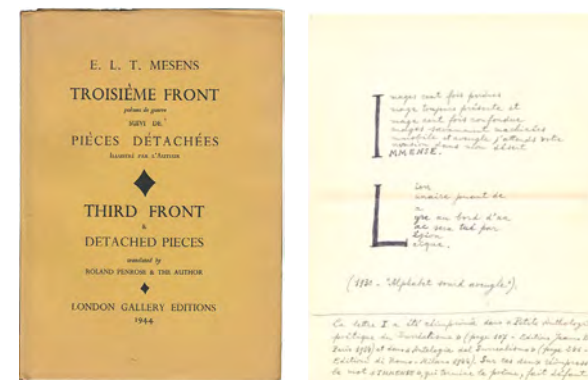 E. L. T. MESENS
TROISIÈME FRONT
poèmes de guerre
SUIVI DE
PIÈCES DÉTACHÉES
ILLUSTRÉ PAR L'AUTEUR
THIRD FRONT
&
DETACHED PIECES
translated by
ROLAND PENROSE & THE AUTHOR
LONDON GALLERY EDITIONS
1944
I
mages cent fois perdues
mage toujours présente et
mage cent fois confondue
mages savamment machinées
mmobile et aveugle j'attends votre
dans mon désert
MMENSE.
L
ion
unaire puant de
a
yre au bord d'un
ac sera tué par
égion
aïque.
(1930 - "Alphabet sourd aveugle").
Ce lettre I a été réimprimée dans "Petite Anthologie
poétique du Surréalisme" (page 107 - Editions Jeanne B
Paris 1934) et dans Antologia del Surrealismo (page
Edizioni di Uomo - Milano 1944). Sur ces deux réimpress
le mot "IMMENSE", qui termine le poème, fait défaut